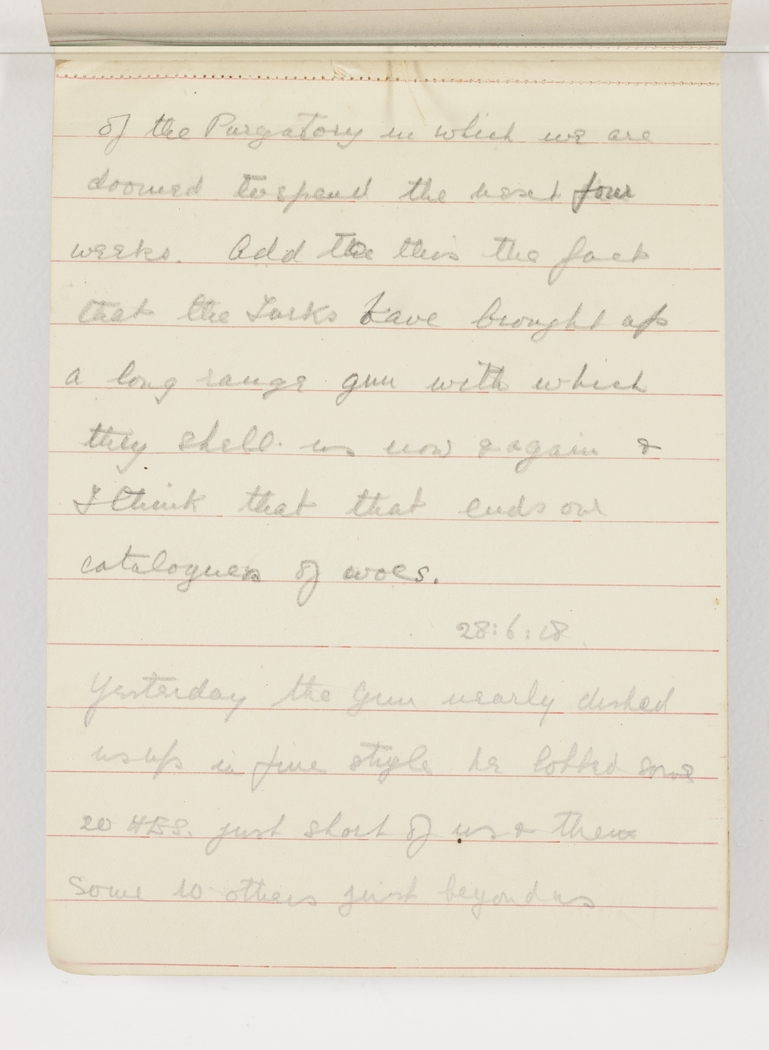 of the Purgatory in which we are
doomed to spend the next four
weeks. Add to this the fact
that the Turks have brought up
a long range gun with which
they shell us now & again &
I think that that ends our
catalogues of woes.
28:6:18.
Yesterday the gun nearly dished
us up in fine style he lobbed some
20 H.E.S. just short of us & then
some 10 others just beyond us